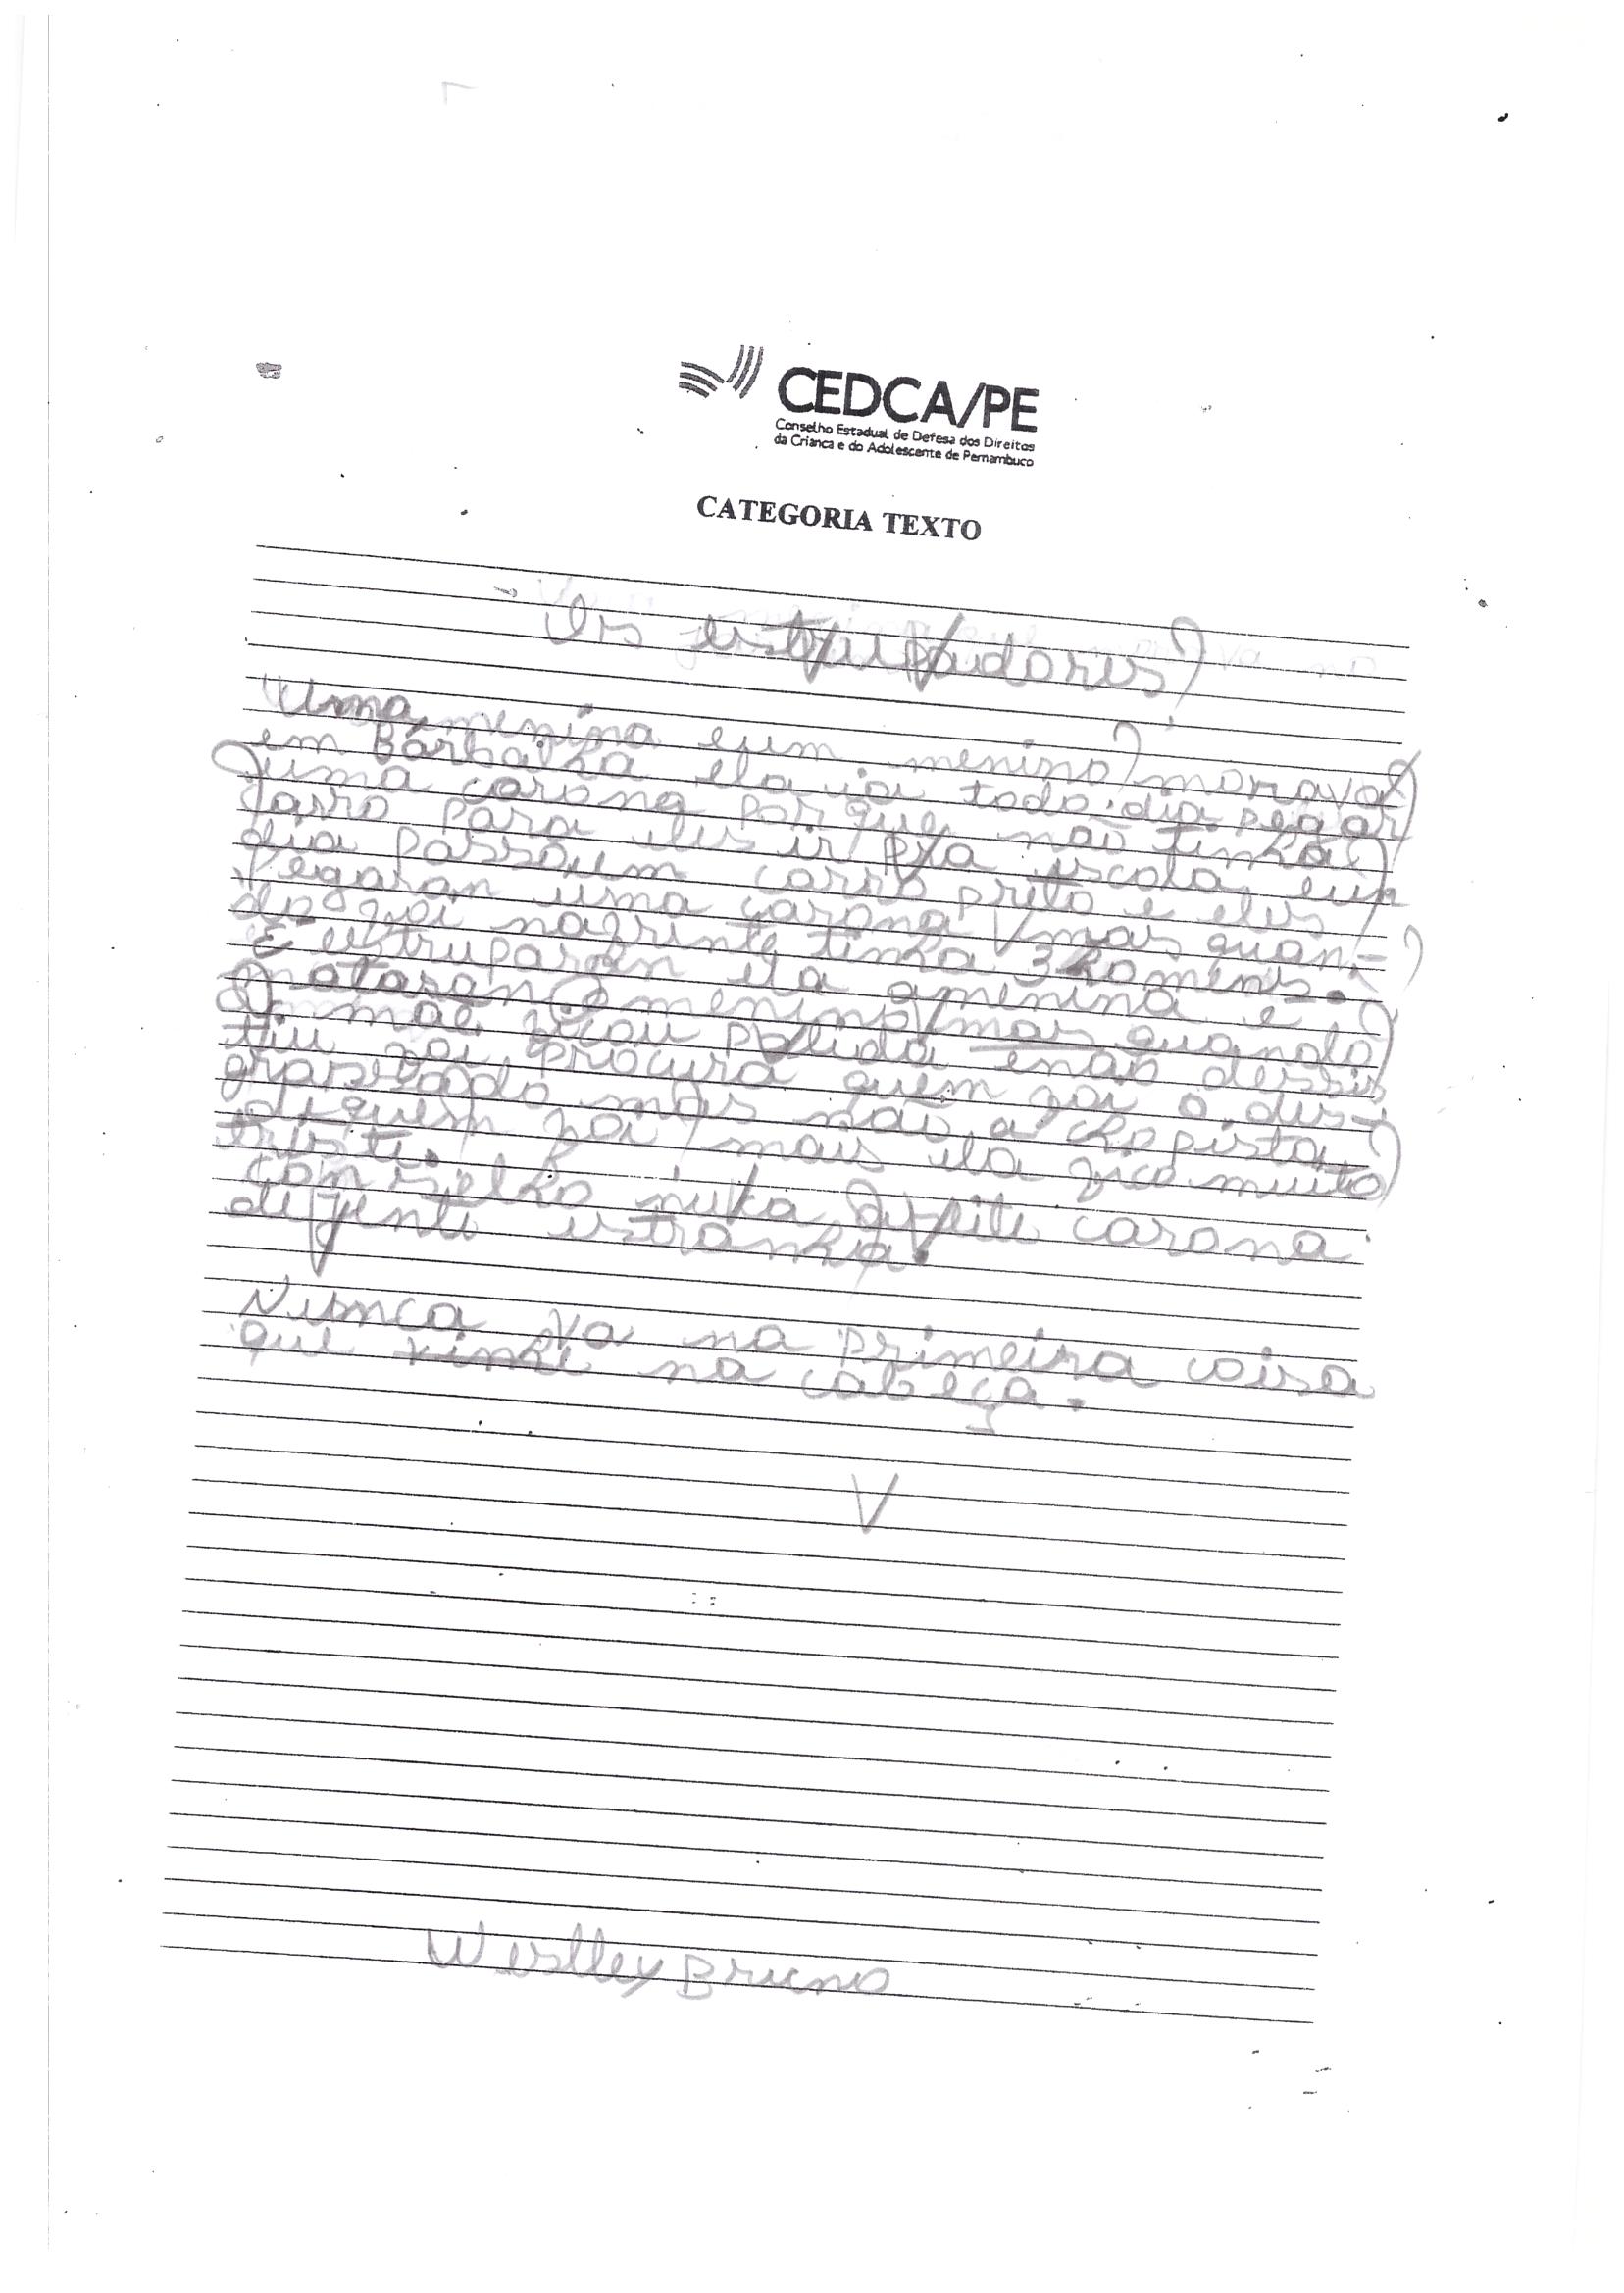 CEDCA/PE
Conselho Estadual de Defesa dos Direitos
da Crianca e do Adolescente de Pernambuco
CATEGORIA TEXTO
Os estrupadores
Uma menina eum menino morava
em Barbalha ela ia todo dia pegar
uma carona porque não tinha
carro para eles ir pra escola, eum
dia passoum carro preto e eles
pegaran uma carona mas quan-
do foi nafrente tinha 3 homens.
E estruparan ela amenina e
mataran o menino mas quando
A mãe ficou palida enão dessis
tiu foi procura quem foi o des-
grasado mas não a chopista
diquem foi mais ela fico muito
triste.
conselho nuka aseite carona
de jente estranha.
Nunca va na primeira coisa
que vinhe na cabeça.
Weslley Bruno